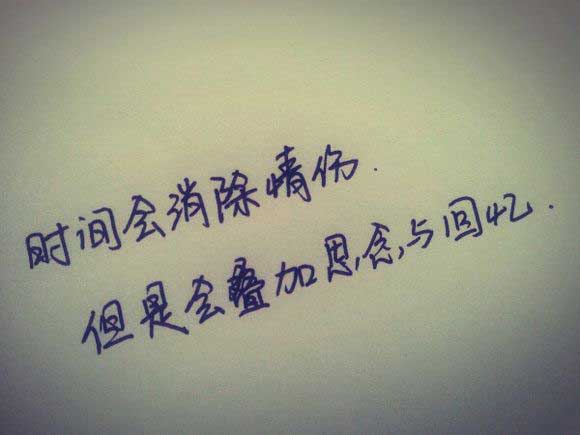 时间会消除情伤.
但是会叠加思念与回忆.